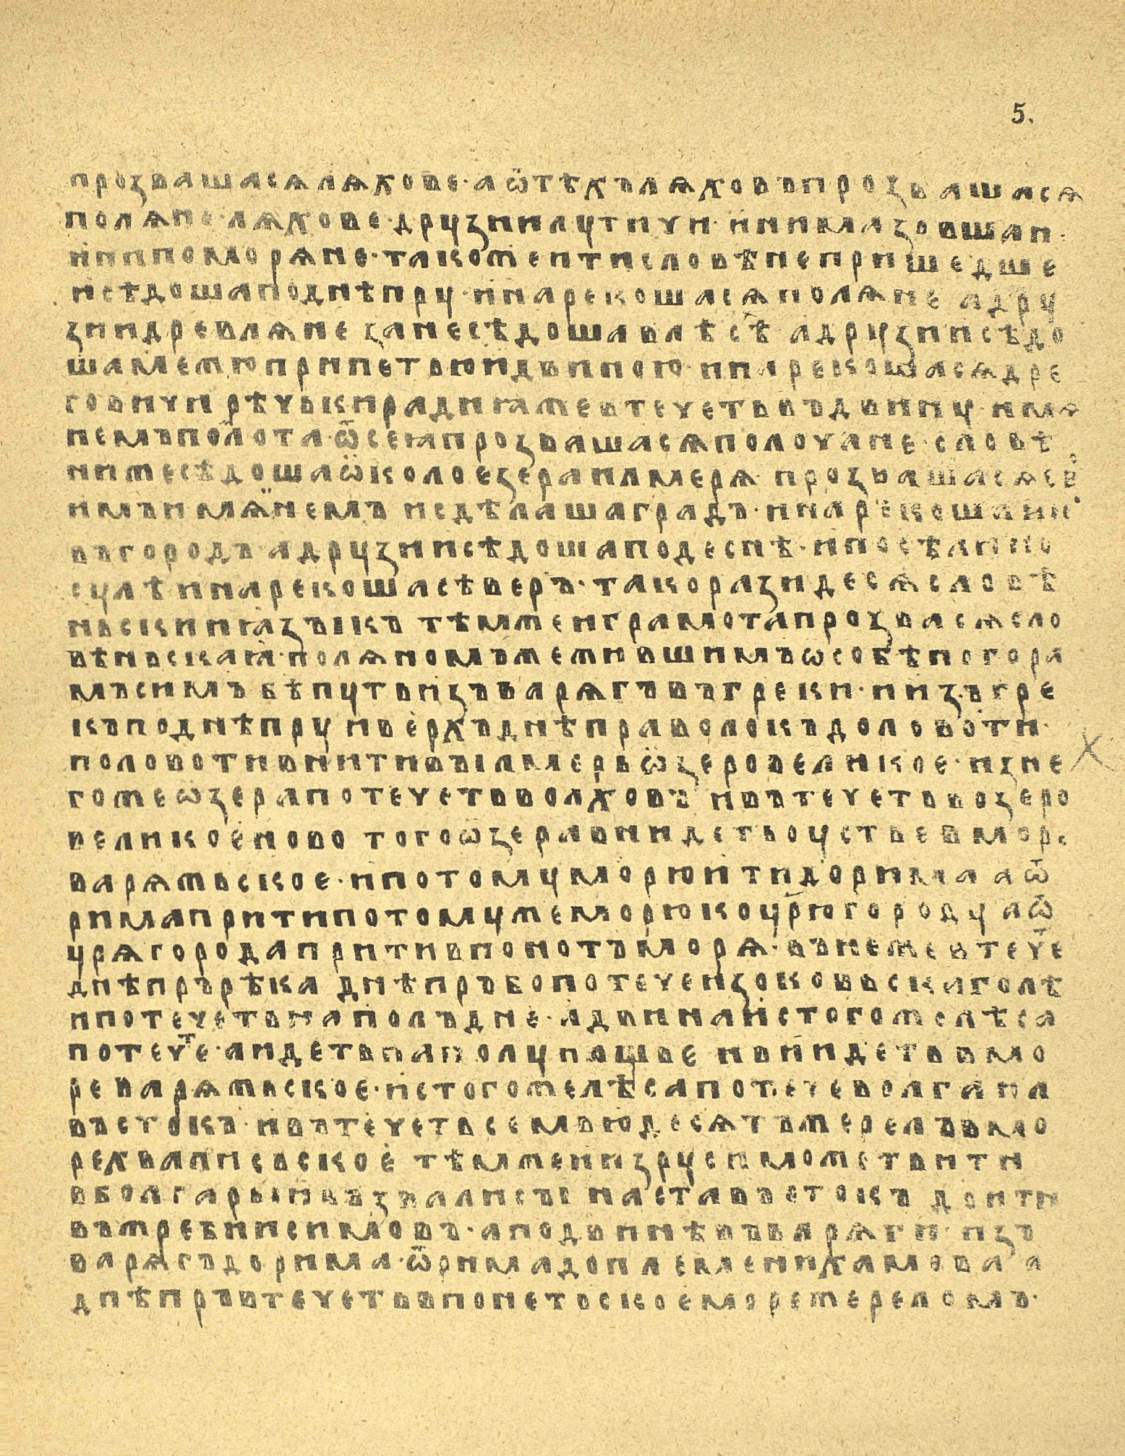 5.
прозвашасѧлѧховє·аѿтѣхълѧховъпрозвашасѧ
полѧне·лѧховє·друзиилутичи·инимазовшан·
инипоморѧне·такожеитисловѣнепришедше
исѣдошаподнѣпру·инарекошасѧполѧне адру
зиидревлѧне занесѣдошавлѣсѣ адрузиисѣдо
шамежюприпетьюидъвиною·инарекошасѧдре
говичи рѣчькирадиꙗжевтечетьвъдвину·имѧ
немъполота·ѿсеꙗпрозвашасѧполочане·словѣ
нижесѣдошаѡколоезераилмерѧ·прозвашасѧсв
имъимѧнемъ исдѣлашаградъ·инарекошаи
въгородъ·адрузиисѣдошаподеснѣ·ипосѣмиипо
сулѣинарекошасѣверъ·такоразидесѧсловѣ
ньскииꙗзыкъ тѣмжеиграмотапрозвасѧсло
вѣньскаꙗ·полѧномъжежившимъѡсобѣпогора
мъсимъ бѣпутьизъварѧгъвъгреки·иизъгре
къподнѣпру ивєрхъднѣправолокъдоловоти·
половотивнитивъілмерьѡзеровеликое·изне
гожеѡзерапотечетьволховъ ивътечетьвозеро
великоєново тогоѡзеравнидетьоустьевмор
варѧжьское·ипотомуморюитидорима аѿ
римапритипотомужеморюкоцрюгороду аѿ
црѧгородапритивпонотъморѧ·въ нежевтече
днѣпръ рѣка днѣпръбопотечеизоковьскаголѣ
ипотечетьнаполъдне·адвинаистогожелѣса
потечет·аидетьнаполунощье ивнидетьвмо
ре варѧжьское·истогожелѣсапотечеволгана
въстокъ·ивътечетьсемьюдесѧтъжерелъвмо
рехвалисьское тѣмжеиизрусиможетьити
вболгарыивъхвалисы наставъстокъ доити
въжребиисимовъ·аподвинѣвъварѧги·изъ
варѧгъдорима·ѿримадоплемениꙗхамова а
днѣпръвтечетьвпонетьскоємореже реломъ·